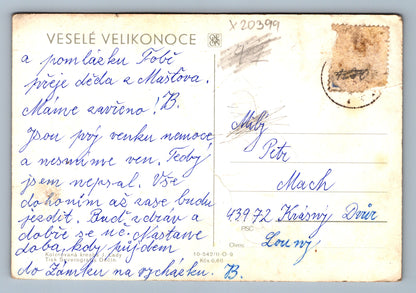 VESELÉ VELIKONOCE
X 20399
a pomlázku Tobě
přeje děda z Mašťova.
Máme zavřeno! B.
Jsou prý venku nemoce,
a nesmíme ven. Tedy
jsem nepsal. Vše
dohoním až zase budu
jezdit. Buď zdráv a
dobře se uč. Nastane
doba, kdy půjdem
do Zámku na vycházku. B.
Kolorovaná kresba J. Rady
Tisk Severografia Děčín
10-542 11-D-9
Kčs 0,60
Milý
Petr
Mach
439 72 Krásný Dvůr
PSČ
Okres:
Louny.